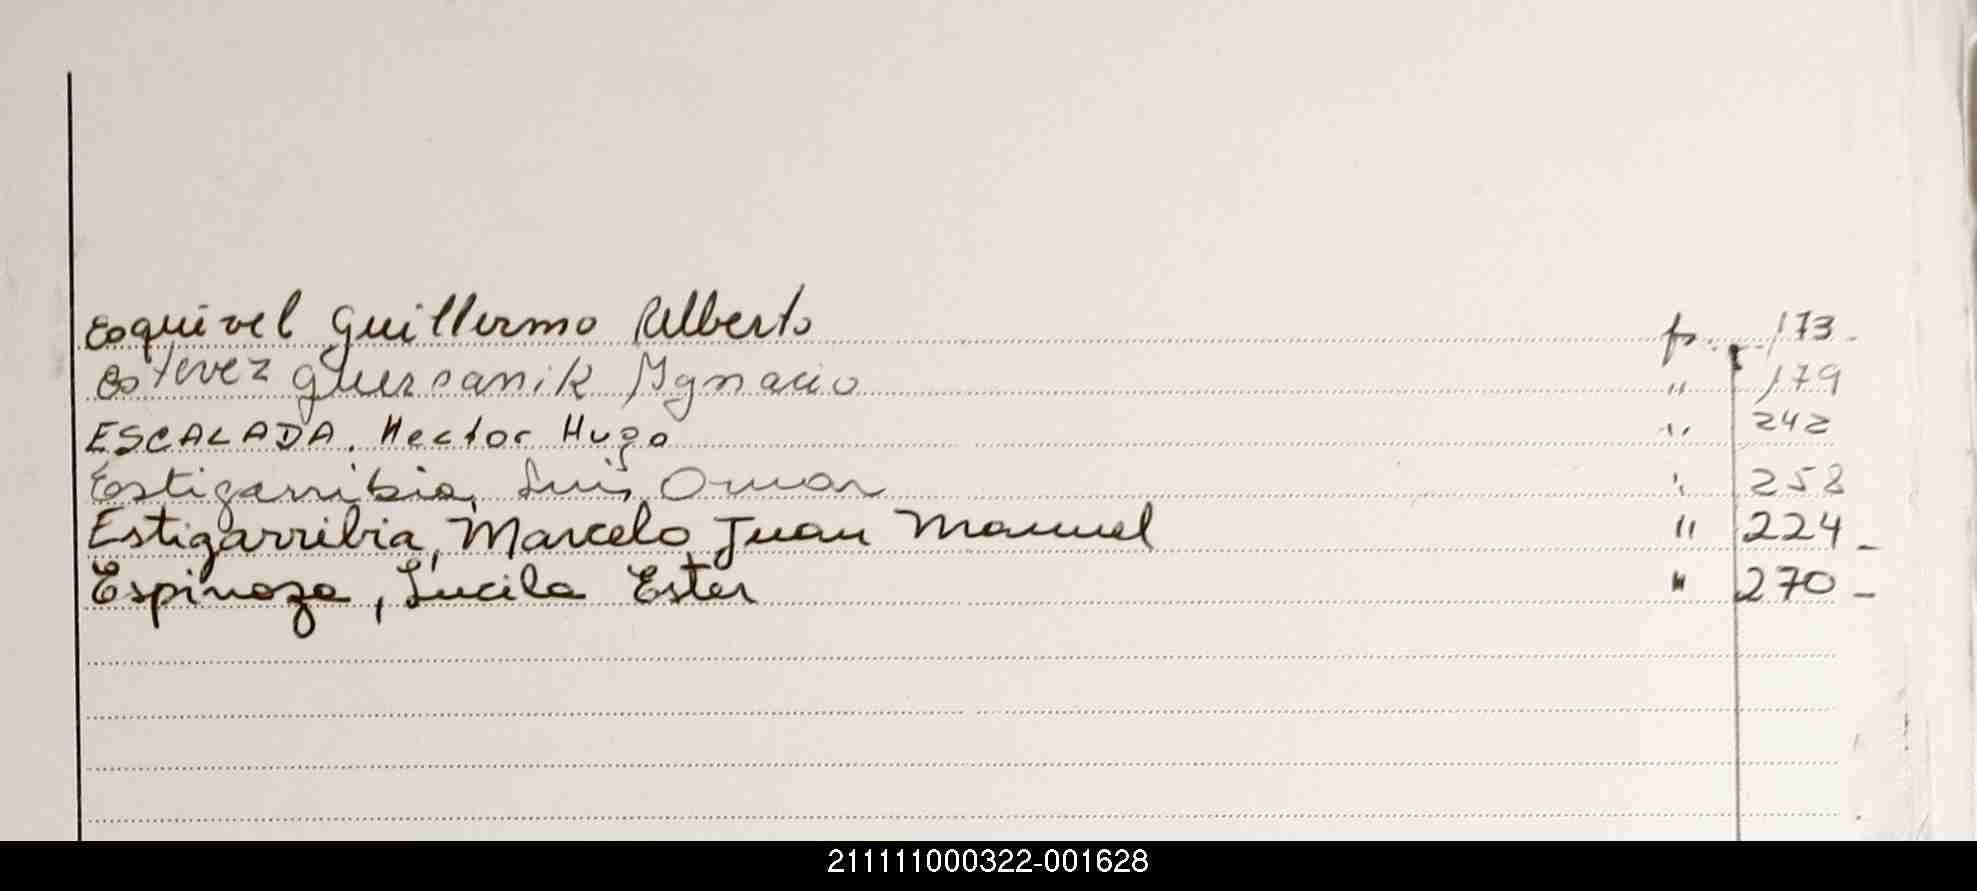 Esquivel Guillermo Alberto fs. 173.
Estevez Guersanik Ygnacio " 179
ESCALADA. Hector Hugo " 242
Estigarribia, Luis Omar " 258
Estigarribia, Marcelo Juan Manuel " 224_
Espinoza, Lucila Ester " 270_
211111000322-001628